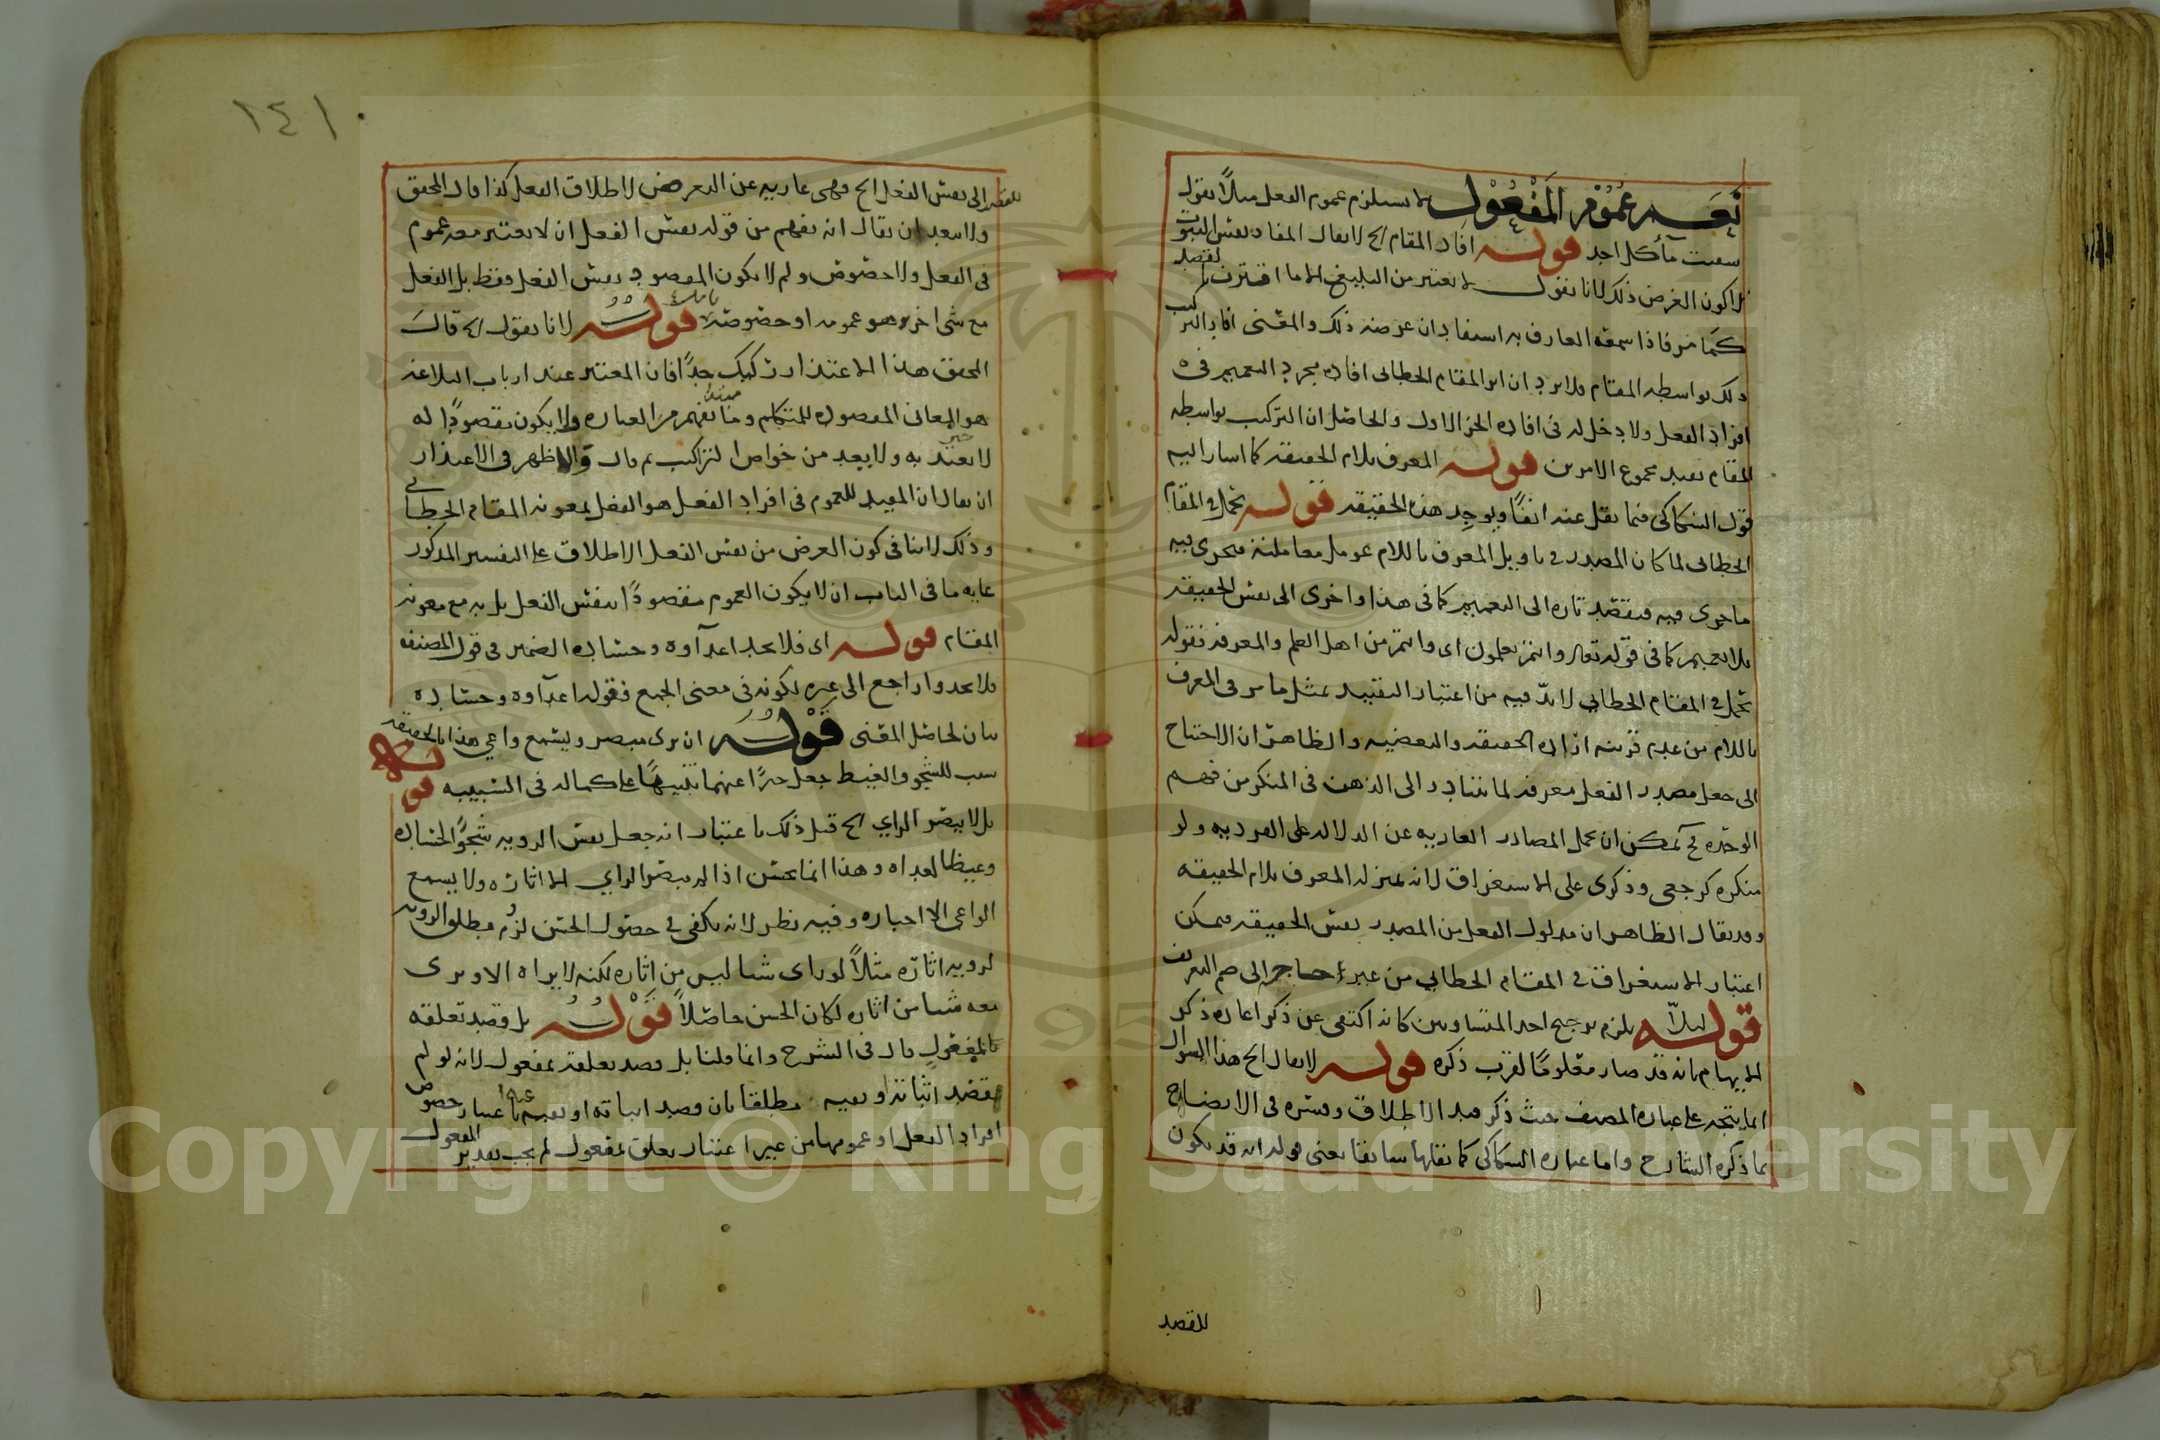 نعم عموم المفعول لا يستلزم عموم الفعل مثلا تقول
سمعت مآكل احد قوله افاد المقام الخ لا يقال المفاد نفس الثبوت
لا كون الغرض ذلك لانا نقول لا يعتبر من البليغ الا ما اقترن بالقصد
كما مر فاذا سمعه العارف به استفاد ان غرضه ذلك والمعنى افاد التركيب
ذلك بواسطه المقام فلا يرد ان المقام الخطابى افاده مجرد التعميم فى
افراد الفعل ولا دخل له فى افاده الجزء الاول والحاصل ان التركيب بواسطه
المقام يفيد مجموع الامرين قوله المعرف بلام الحقيقه كما اشار اليه
قول السكاكى فيما نقل عنه انفا ويوجد هذه الحقيقه قوله يحمل فى المقام
الخطابى لما كان المصدر فى تاويل المعرف باللام عومل معاملته فيجرى فيه
ما جرى فيه فيقصد تاره الى التعميم كما فى هذا واخرى الى نفس الحقيقه
بلا تعميم كما فى قوله تعالى وانتم تعلمون اى وانتم من اهل العلم والمعرفه فقوله
يحمل فى المقام الخطابي لا بد فيه من اعتبار التقييد بمثل ما مر فى المعرف
باللام من عدم قرينه اراده الحقيقه والبعضيه والظاهر ان الاحتياج
الى جعل مصدر الفعل معرفه لما يتبادر الى الذهن فى المنكر من فهم
الوحده يمكن ان يحمل المصادر العاريه عن الدلاله على الفرديه ولو
منكره كرجعى وذكرى على الاستغراق لانه بمنزله المعرف بلام الحقيقه
وقد يقال الظاهر ان مدلول الفعل من المصدر نفس الحقيقه فيمكن
اعتبار الاستغراق فى المقام الخطابي من غير احتياج الى ضم التعريف
قوله لئلا يلزم ترجيح احد المتساويين كانه اكتفى عن ذكر اعاده ذكر
الابهام بانه قد صار معلوما لقرب ذكره قوله لا يقال الخ هذا السوال
انما يتجه على عباره المصنف حيث ذكر قيد الاطلاق وفسره فى الايضاح
بما ذكره الشارح واما عباره السكاكى كما نقلها سابقا يعنى قوله انه قد يكون
للقصد
١٤١
للقصد الى نفس الفعل الخ فهى عاريه عن التعرض لاطلاق الفعل كذا قال المحقق
ولا يبعد ان يقال انه يفهم من قوله نفس الفعل ان لا يعتبر معه عموم
فى الفعل ولا خصوص ولم لا يكون المقصود نفس الفعل فقط بل الفعل
مع شى اخر وهو عمومه او خصوصه قوله لانا نقول الخ قال
المحقق هذا الاعتذار ركيك جدا فان المعتبر عند ارباب البلاغه
هو المعانى المقصوده للمتكلم وما يفهم من العباره ولا يكون مقصودا له
لا يعتد به ولا يعد من خواص التراكيب ثم قال والاظهر فى الاعتذار
ان يقال ان المفيد للعموم فى افراد الفعل هو الفعل بمعونه المقام الخطابى
وذلك لا ينافى كون الغرض من نفس الفعل الاطلاق على التفسير المذكور
غايه ما فى الباب ان لا يكون العموم مقصودا بنفس الفعل بل به مع معونه
المقام قوله اى فلا يجد اعدآوه وحساده الضمير فى قول المصنف
فلا يجدوا راجع الى غيره لكونه فى معنى الجمع فقوله اعدآوه وحساده
بيان لحاصل المعنى قوله ان يرى مبصر ويسمع واعي هذا بالحقيقه
سبب للشجو والغيظ جعل خبرا عنهما تنبيها على كماله فى السببيه قوله
بل لا يبصر الراي الخ قيل ذلك باعتبار انه جعل نفس الرويه شجو الحساده
وغيظا لعداه وهذا انما يحسن اذا لم يبصر الراي الا اثاره ولا يسمع
الواعى الا اخباره وفيه نظر لانه يكفى فى حصول الحسن لزوم مطلق الرويه
لرويه اثاره مثلا لو راى شيا ليس من اثاره لكنه لا يراه الا ويرى
معه شيا من اثاره لكان الحسن حاصلا قوله بل قصد تعلقه
بالمفعول قال فى الشرح وانما قلنا بل قصد تعلقه بمفعول لانه لو لم
يقصد اثباته او نفيه مطلقا بان قصد اثباته او نفيه عنه باعتبار خصوص
افراد الفعل او عمومها من غير اعتبار تعلق بمفعول لم يجب تقدير المفعول
Copyright © King Saud University
1957